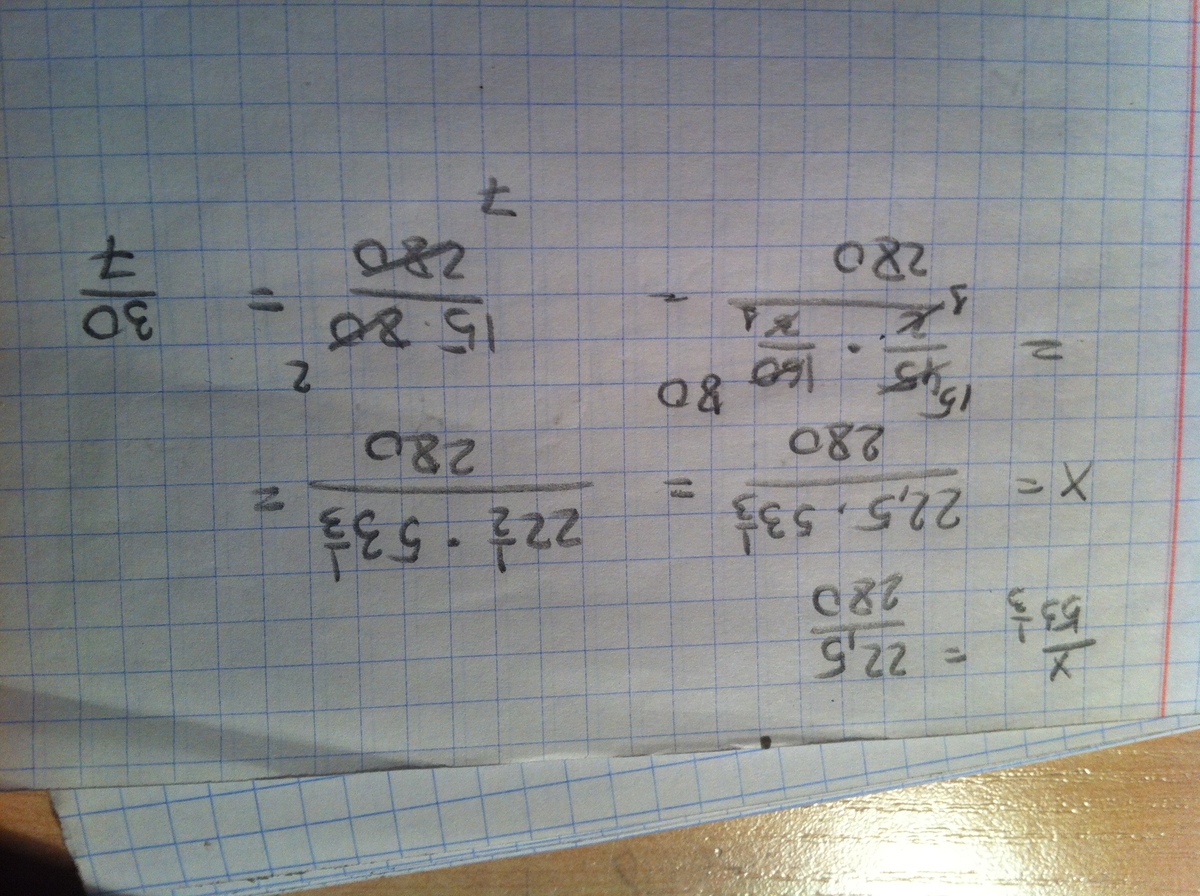 x/53 1/3 = 22,5/280
x = 22,5 · 53 1/3 / 280 = 22 1/2 · 53 1/3 / 280 =
= 15 45/2 1 · 160 80/2 1 / 280 = 15 · 80 2 / 280 7 = 30/7